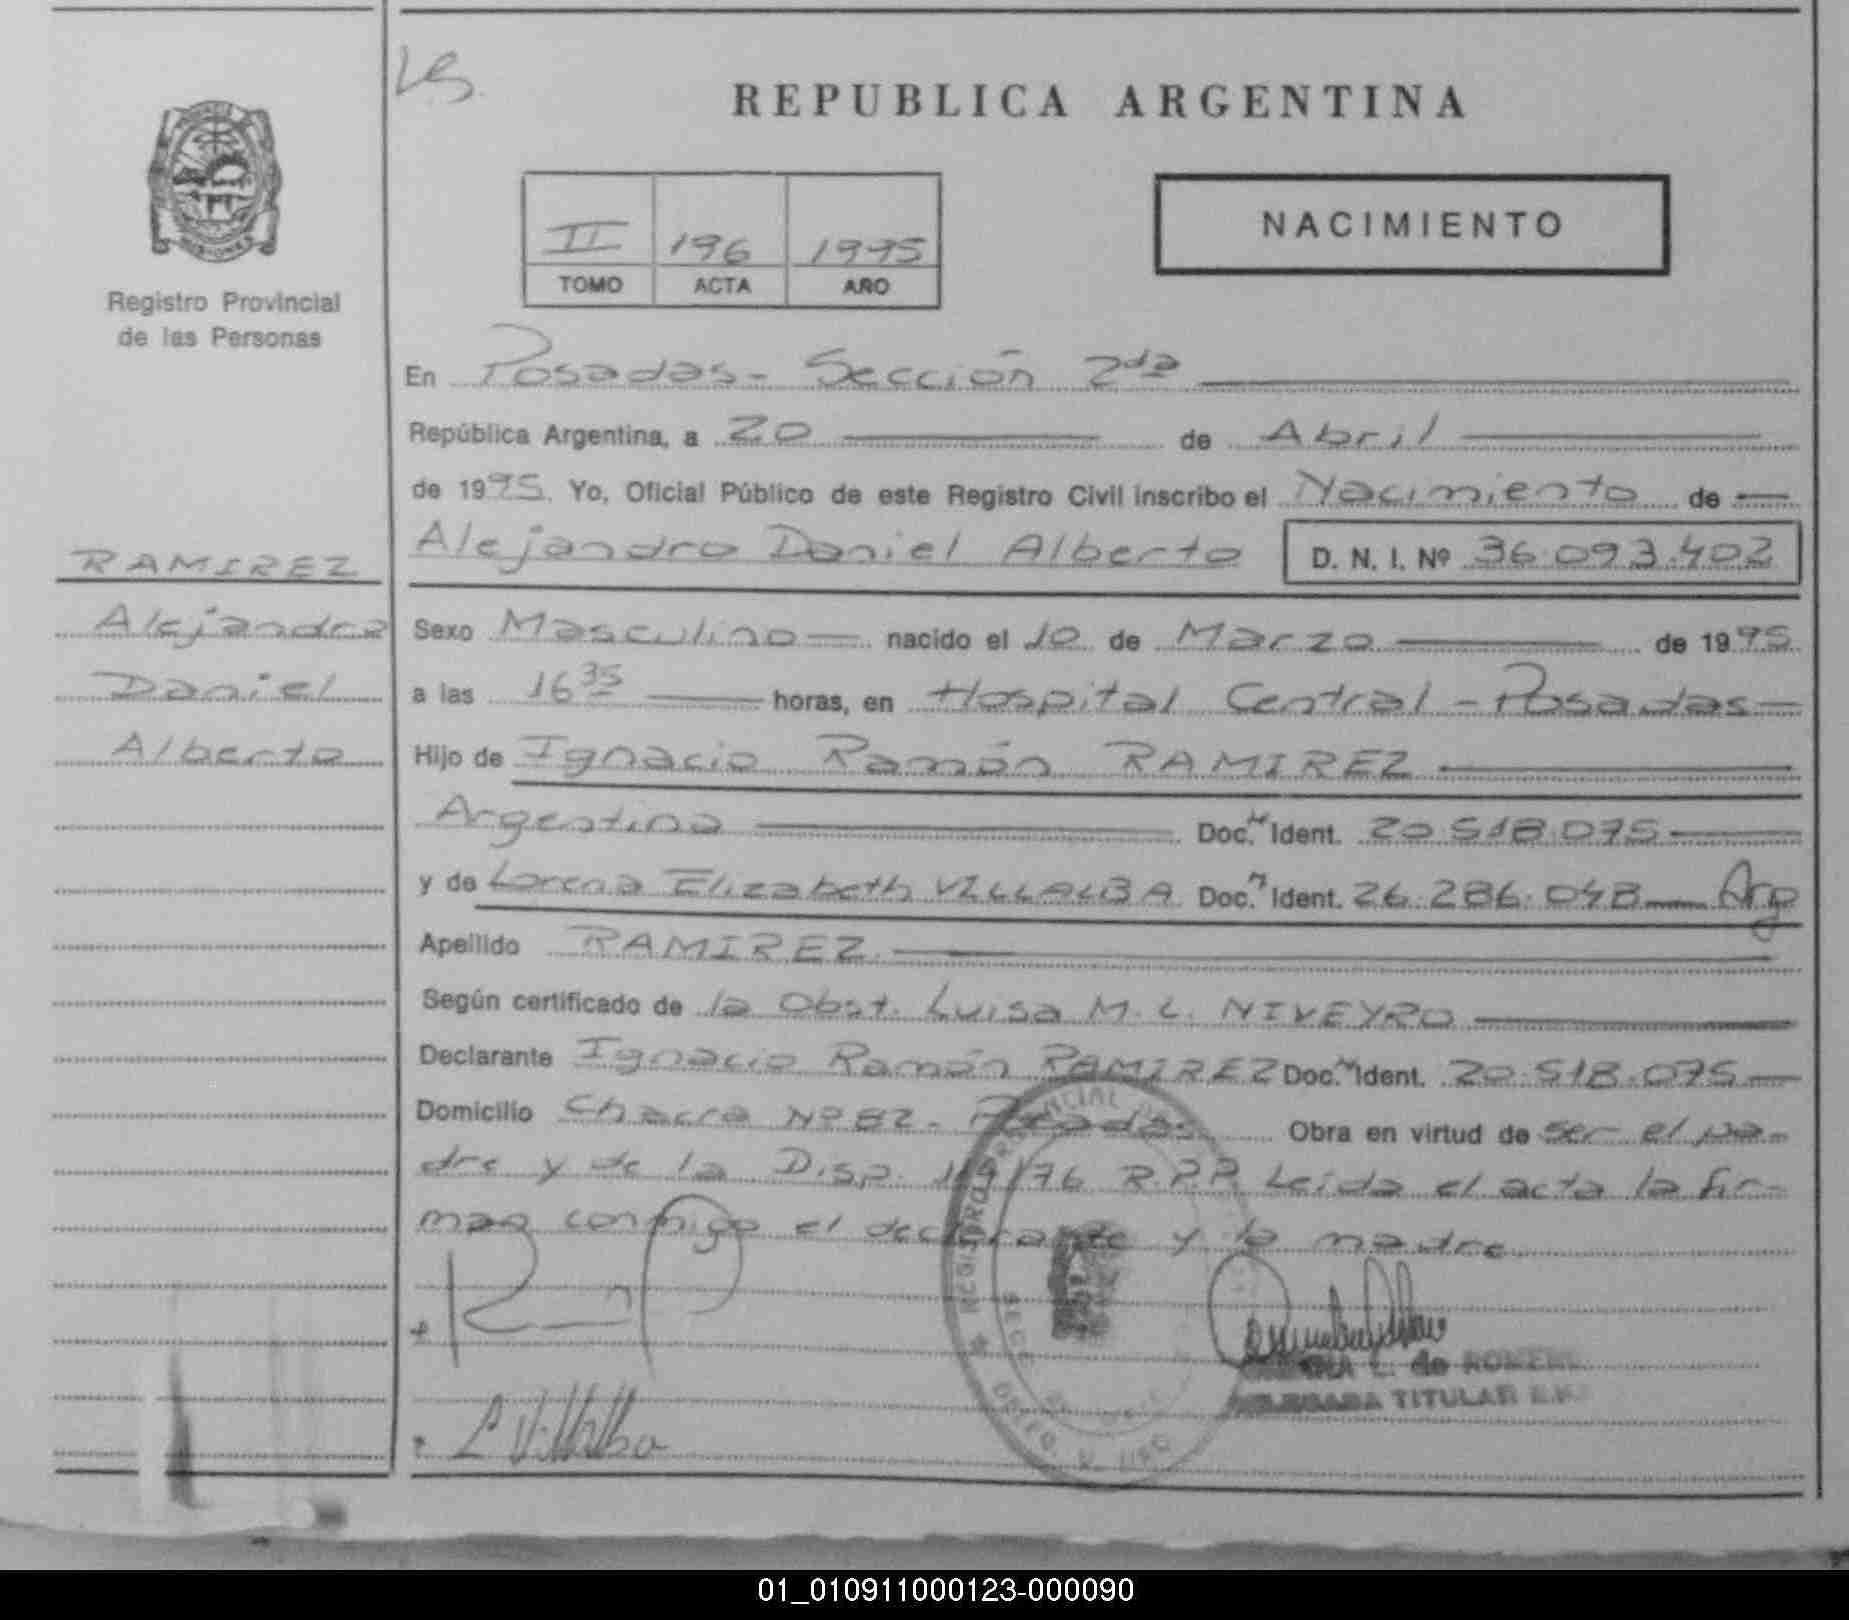 LS.
REPUBLICA ARGENTINA
II 196 1995
TOMO ACTA AÑO
NACIMIENTO
Registro Provincial
de las Personas
En Posadas - Sección 2da
República Argentina, a 20 de Abril
de 1995. Yo, Oficial Público de este Registro Civil inscribo el Nacimiento de
Alejandro Daniel Alberto D. N. I. Nº 36.093.402
RAMIREZ
Alejandro
Daniel
Alberto
Sexo Masculino nacido el 10 de Marzo de 1995
a las 16 35 horas, en Hospital Central - Posadas -
Hijo de Ignacio Ramón RAMIREZ
Argentino Doc. N Ident. 20.518.075
y de Lorena Elizabeth VILLALBA Doc. N Ident. 26.286.048 Arg
Apellido RAMIREZ
Según certificado de la Obst. Luisa M. L. NIVEYRO
Declarante Ignacio Ramón RAMIREZ Doc. N Ident. 20.518.075
Domicilio Chacra Nº 82 - Posadas Obra en virtud de ser el pa-
dre y de la Disp. 119/76 R.P.P. Leida el acta la fir-
man conmigo el declarante y la madre
L Villalba
L. de ROMERO
DELEGADA TITULAR
01_010911000123-000090